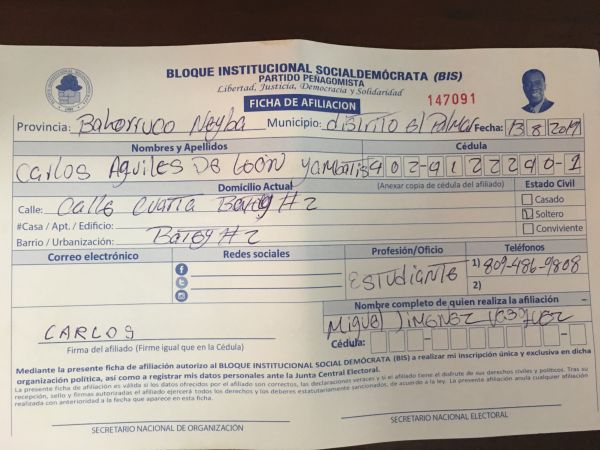 BLOQUE INSTITUCIONAL SOCIALDEMÓCRATA (BIS)
PARTIDO PEÑAGOMISTA
Libertad, Justicia, Democracia y Solidaridad
FICHA DE AFILIACION
147091
Provincia: Bahorruco Neyba Municipio: distrito el Palmar Fecha: 13 8 2019
Nombres y Apellidos Cédula
Carlos Aquiles De León Yambatis 402-9122290-1
Domicilio Actual (Anexar copia de cédula del afiliado) Estado Civil
Calle: Calle Cuarta Batey #2 Casado
#Casa / Apt. / Edificio: Soltero
Barrio / Urbanización: Batey #2 Conviviente
Correo electrónico Redes sociales Profesión/Oficio Teléfonos
ESTUDIANTE 1) 809-486-9808
2)
Nombre completo de quien realiza la afiliación
Miguel Jimenez Vasquez
CARLOS Cédula:
Firma del afiliado (Firme igual que en la Cédula)
Mediante la presente ficha de afiliación autorizo al BLOQUE INSTITUCIONAL SOCIAL DEMÓCRATA (BIS) a realizar mi inscripción única y exclusiva en dicha
organización política, así como a registrar mis datos personales ante la Junta Central Electoral.
La presente ficha de afiliación es válida si los datos ofrecidos por el afiliado son correctos, las declaraciones veraces y si el afiliado tiene el disfrute de sus derechos civiles y políticos. Tras su
recepción, sello y firmas autorizadas el afiliado ejercerá todos los derechos y los deberes estatutariamente sancionados, de acuerdo a la ley. La presente afiliación anula cualquier afiliación
realizada con anterioridad a la fecha que aparece en esta ficha.
SECRETARIO NACIONAL DE ORGANIZACIÓN SECRETARIO NACIONAL ELECTORAL